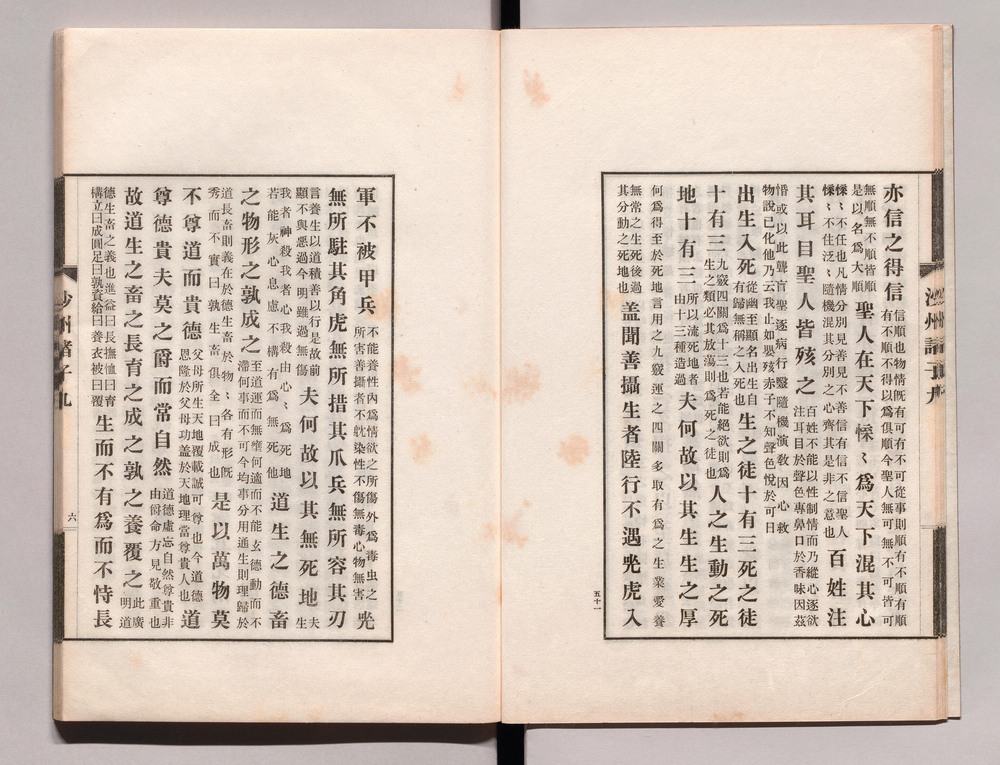 亦信之得信信順也物情既有可有不可從事則順有不順有順有不順不得以爲俱順今聖人無可無不可皆可
無順無不順皆順是以名爲大順聖人在天下惵〻爲天下混其心
惵〻不住也凡情分別見善見不善信有信不信聖人惵〻不住泛〻隨機混其分別之心齊其是非之意也百姓注
其耳目聖人皆㧡之百姓不能以性制情而乃縱心逐欲注耳目於聲色專鼻口於香味因茲
惛或以此聾盲聖逐病行毉隨機演敎因心救物說已化他乃云我止如嬰㧡赤子不知聲色悅於可日
出生入死從幽至顯名出生自有歸無稱之入死也生之徒十有三死之徒
十有三九竅四關爲十三也若能絕欲則爲生之類必其放蕩則爲死之徒也人之生動之死
地十有三所以流死地者由十三種造過夫何故以其生生之厚
何爲得至於死地言用之九竅運之四關多取有爲之生業愛養
無常之生死後過其分動之死地也蓋聞善攝生者陸行不遇兕虎入
沙州諸子九
五十一
軍不被甲兵不能養性內爲情欲之所傷外爲毒虫之所害善攝者性不躭染性不傷無毒心物無害兕
無所駐其角虎無所措其爪兵無所容其刃
言養生以道積善以行是故前顯不與惡過今明雖過無傷夫何故以其無死地夫生
我者神殺我者心我殺由心〻爲死地若能灰心息慮不構有爲無死他道生之德畜
之物形之孰成之至道運而無壅何適而不能玄德動而不滯何事而不可今均事分用通生則理歸於
道長畜則義在於德生畜於物〻各有形旣秀而不實曰孰生畜俱全曰成也是以萬物莫
不尊道而貴德父母所生天地覆載誠可尊也今道德恩隆於父母功盖於天地理當尊貴人也道
尊德貴夫莫之爵而常自然道德虛忘自然尊貴非由爵命方見敬重也
故道生之畜之長育之成之孰之養覆之此廣明道
德生畜之義也進益曰長撫恤曰育構立曰成圓足曰孰資給曰養衣被曰覆生而不有爲而不恃長
沙州諸子九
六